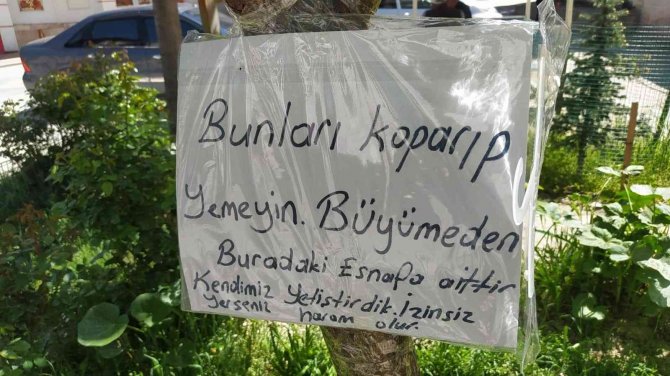 Bunları koparıp
Yemeyin. Büyümeden
Buradaki Esnafa aittir
Kendimiz Yetiştirdik. İzinsiz
Yerseniz haram olur.